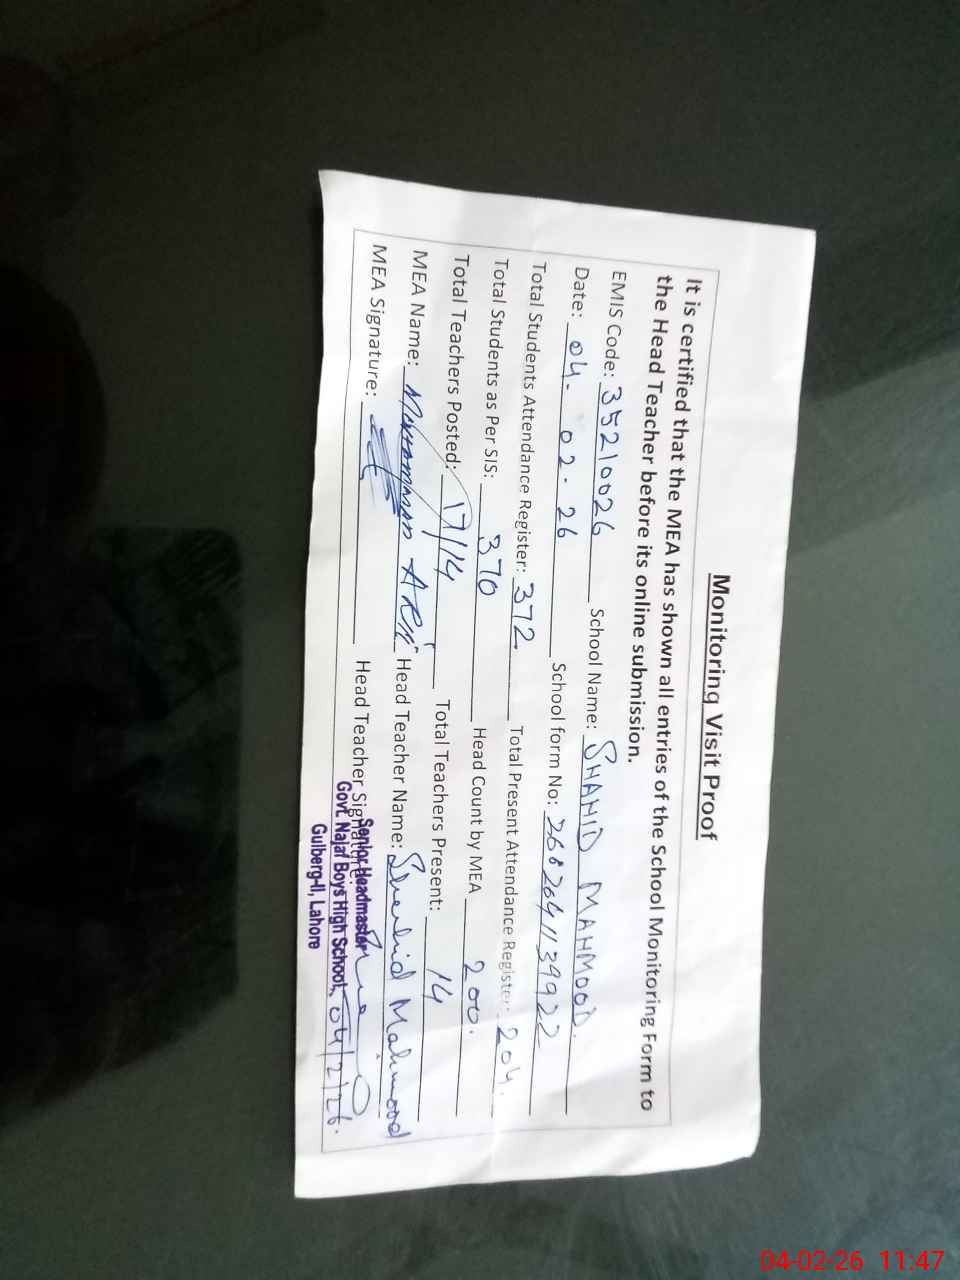 Monitoring Visit Proof
It is certified that the MEA has shown all entries of the School Monitoring Form to
the Head Teacher before its online submission.
EMIS Code: 35210026 School Name: SHAHID MAHMOOD.
Date: 04.02.26 School form No: 260204113992
Total Students Attendance Register: 372 Total Present Attendance Register: 204.
Total Students as Per SIS: 370 Head Count by MEA 200.
Total Teachers Posted: 17/14 Total Teachers Present: 14
MEA Name: Head Teacher Name: Shahid Mahmood
MEA Signature: Head Teacher Signature:
Senior Headmaster
Govt. Najaf Boys High School, 04/2/26.
Gulberg-II, Lahore
04-02-26 11:47